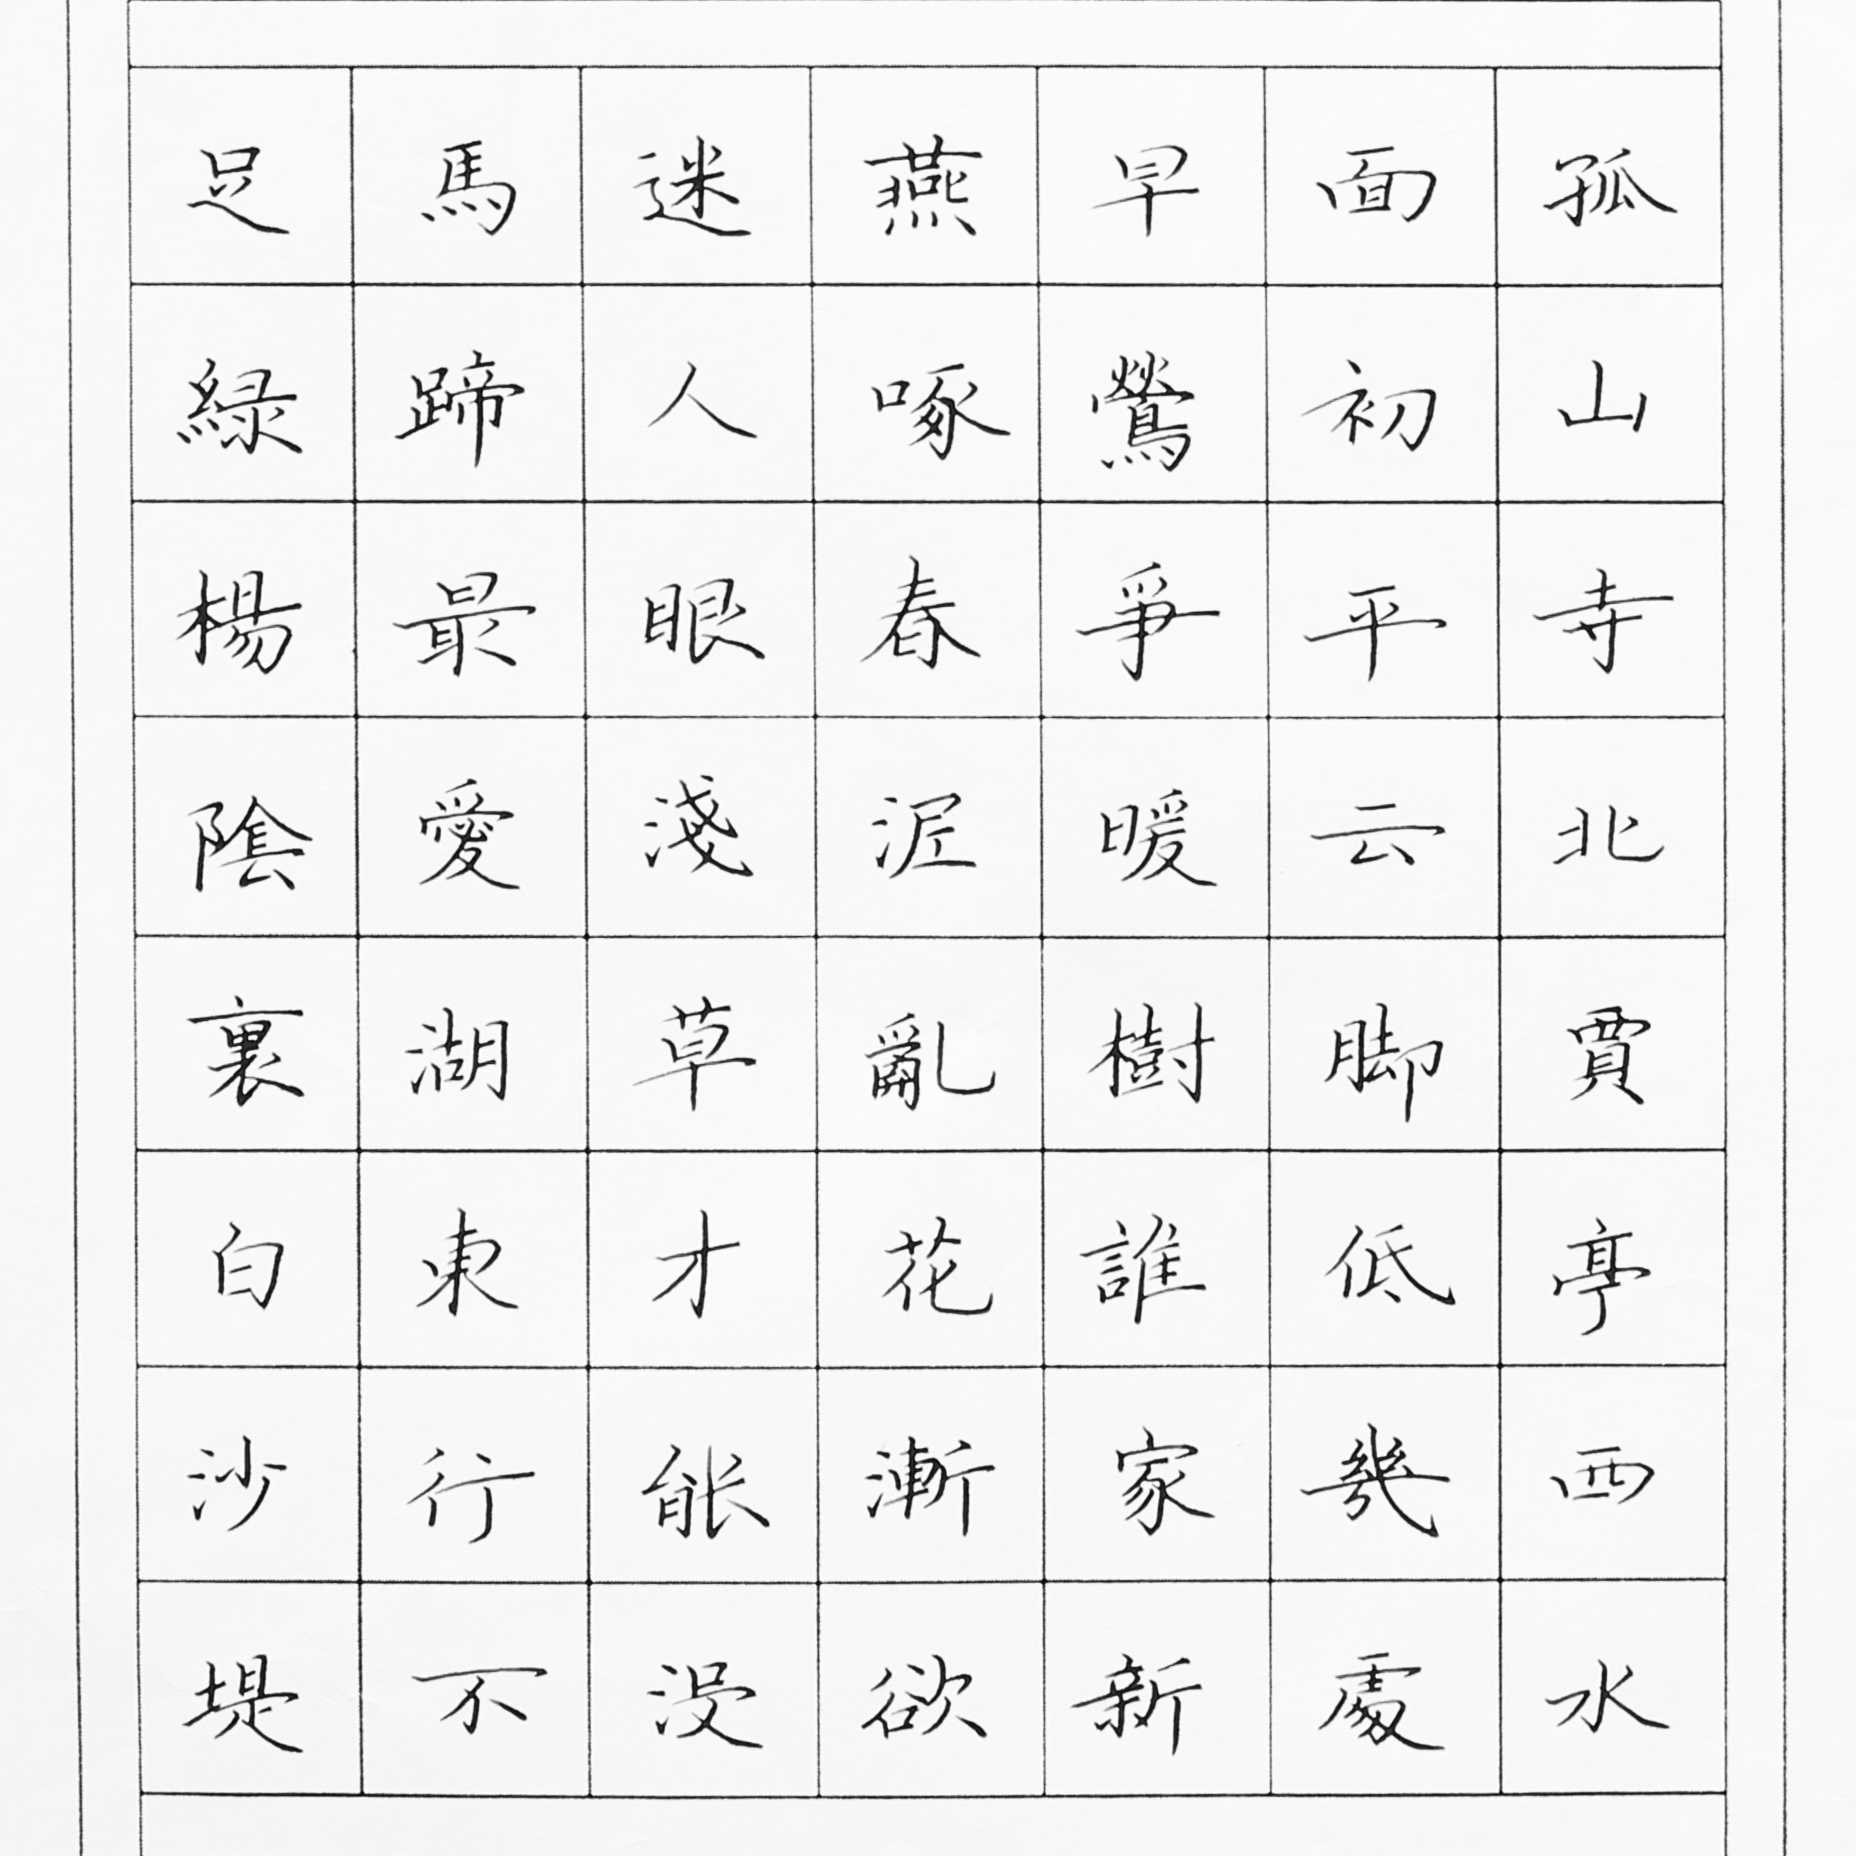 孤山寺北賈亭西水
面初平云脚低幾處
早鶯爭暖樹誰家新
燕啄春泥亂花漸欲
迷人眼淺草才能沒
馬蹄最愛湖東行不
足綠楊陰裏白沙堤